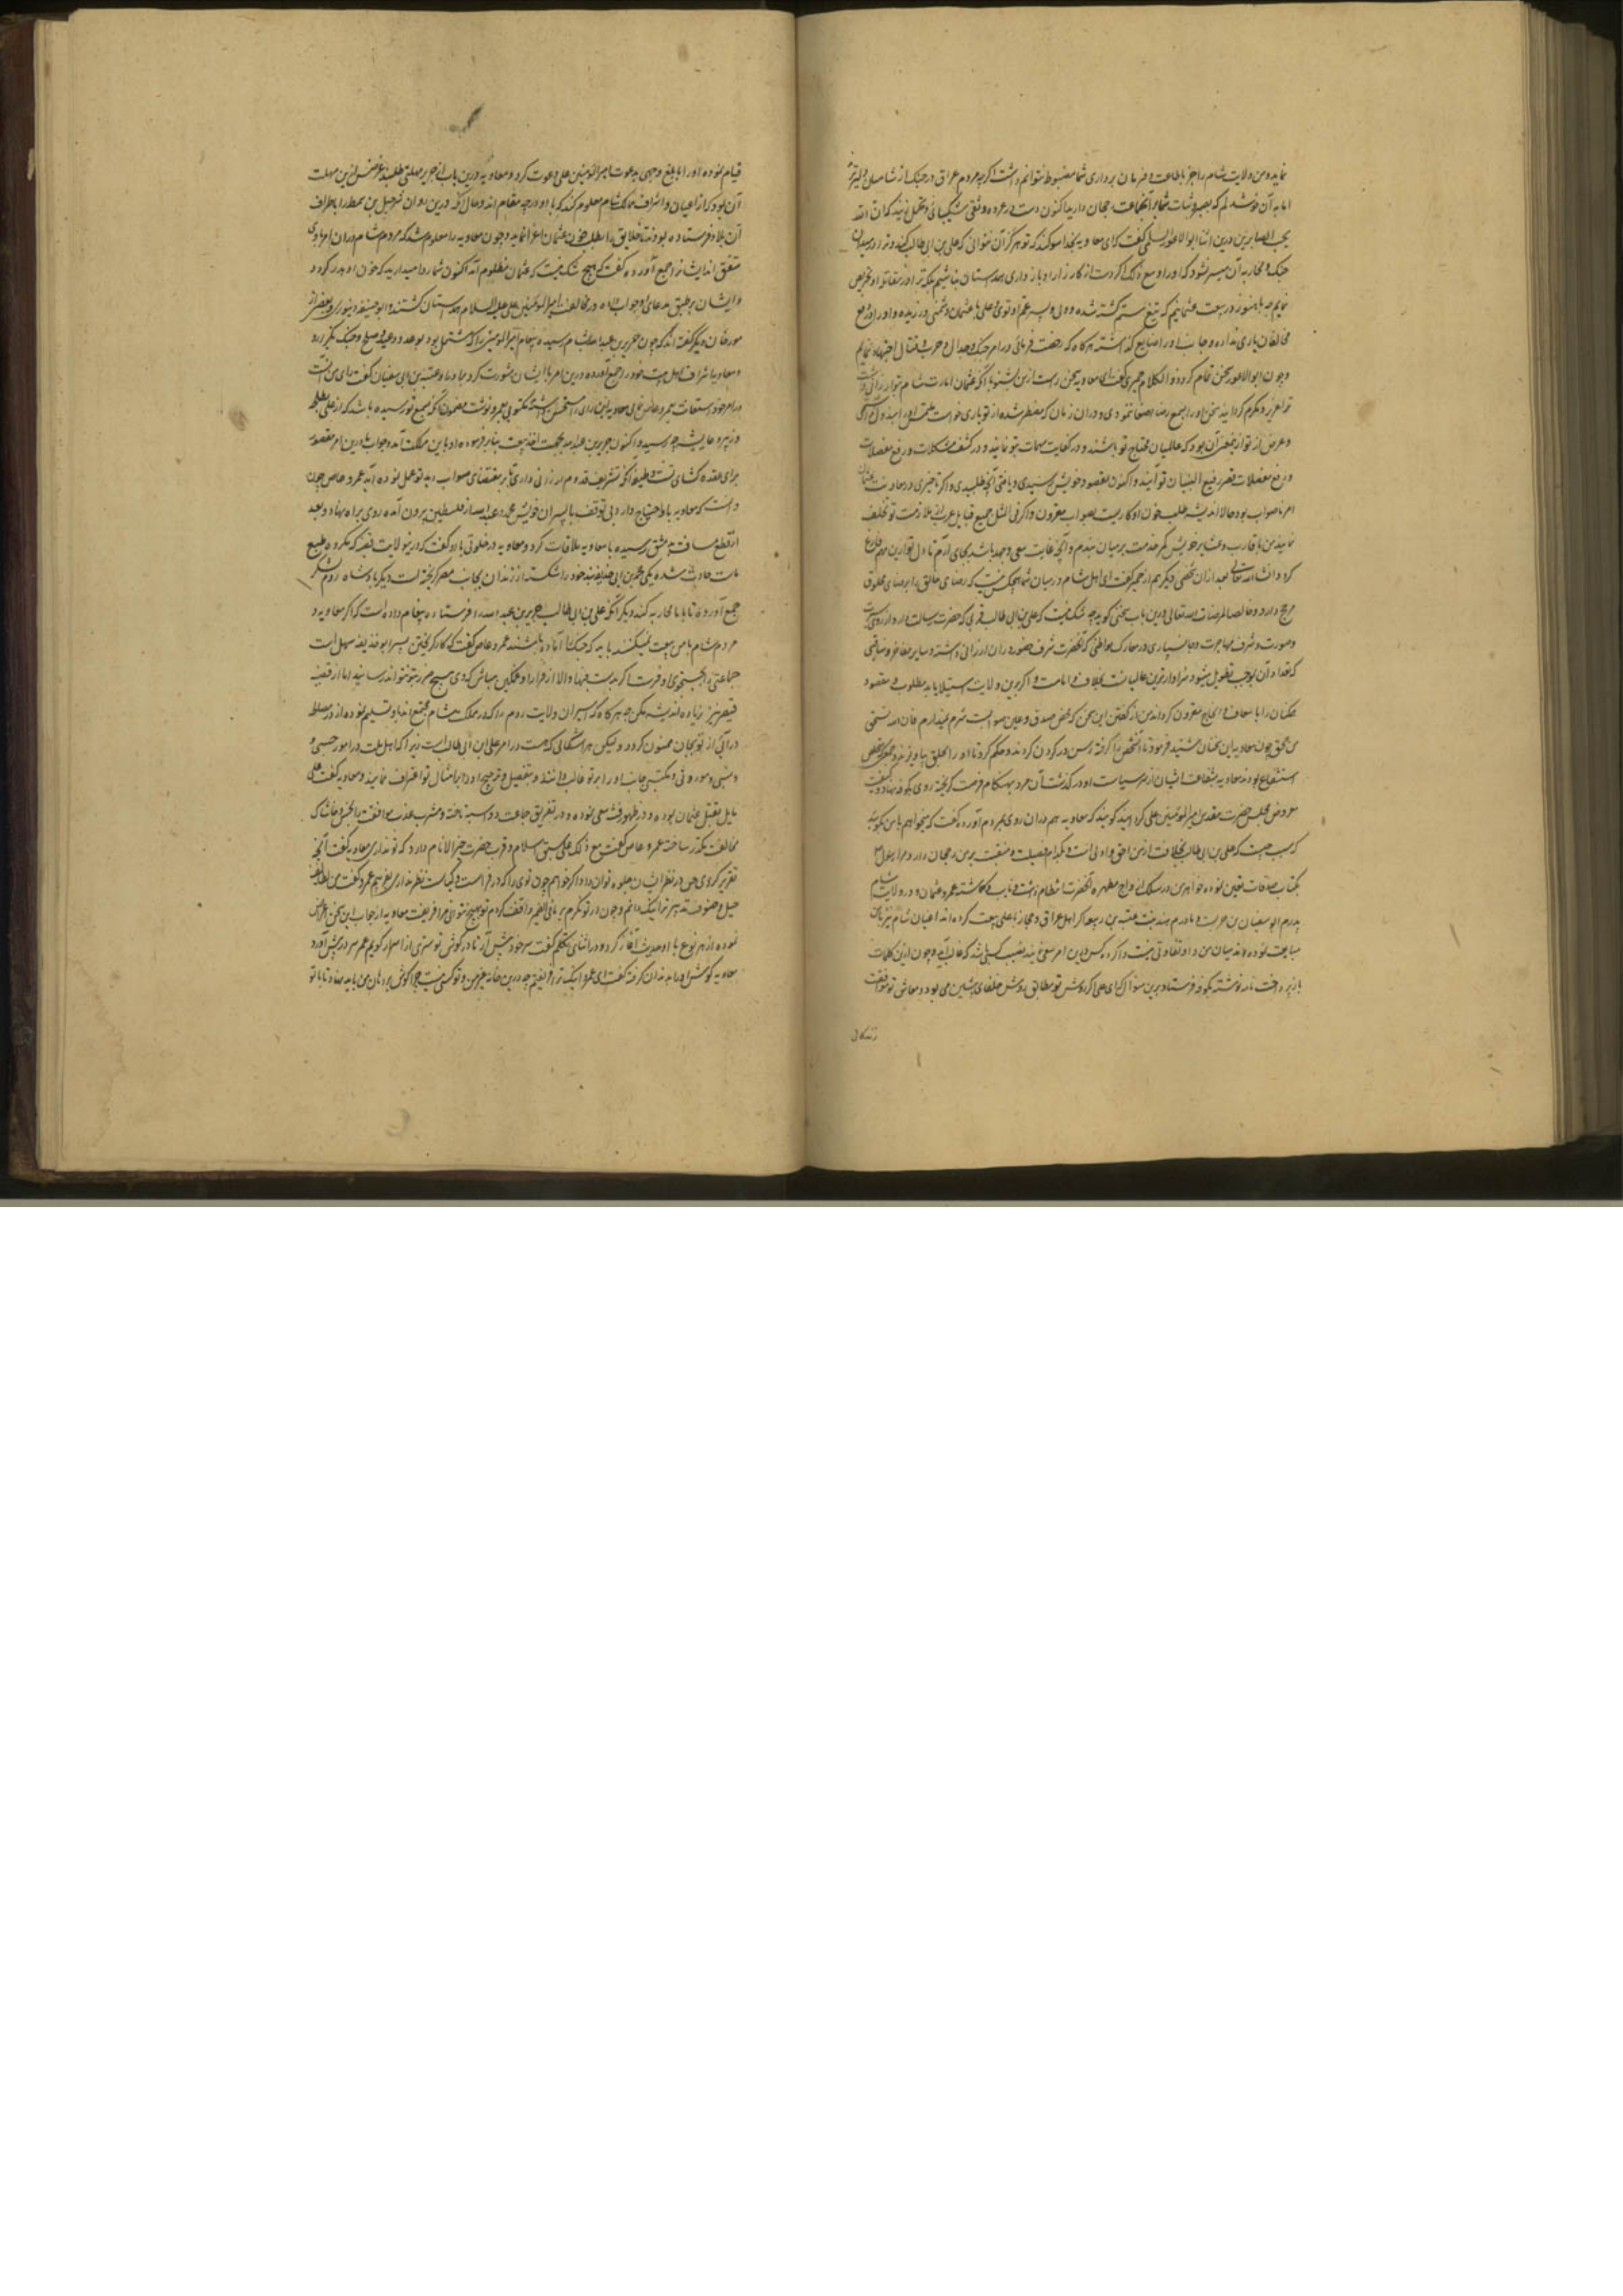 نماید و من ولایت شام را جز باطاعت و فرمان برداری شما مضبوط نتوانم داشت اگرچه مردم عراق در جنک از شامیان دلیرترند
اما به آن خوشدلم که بصبر و ثبات شما بر آنجماعت رجحان دارید اکنون دست در عروه وثقی شکیبائی و تحمل زنید که ان الله
یحب الصابرین درین اثنا ابوالاعور السلمی گفت که ای معاویه بخدا سوکند که تو هرکز آن نتوانی که علی بن ابی طالب کند و ترا در میدان
جنک و محاربه آن میسر نشود که او را و مع ذلک اکر دست از کارزار او باز داری همداستان نباشیم بلکه ترا در مقاتله او تحریض
نمایم چه ما هنوز در بیعت عثمانیم که بتیغ ستم کشته شده و ولی و پسر عم او توی و علی با عثمان دشمنی ورزیده و او را در دفع
مخالفان یاری نداده و جانب او را ضایع گذاشته هرکاه که رخصت فرمائی در امر جنک و جدال و حرب و قتال اجتهاد نمایم
و چون ابوالاعور سخن تمام کرد ذو الکلام حمیری گفت ای معاویه سخن راست از من بشنو با آنکه عثمان امارت شام بتو ارزانی داشت
ترا عزیز و مکرم کردانید سخن او را بسمع رضا اصغا ننمودی و دران زمان که مضطر شده از تو یاری خواست
و غرض از تو آن بود که عالمیان محتاج تو باشند و در کفایت مهمات بتو نمایند و در کشف مشکلات و رفع معضلات
و رفع معضلات بقصر رفیع البنیان تو آیند و اکنون بمقصود خویش رسیدی و یافتی آنچه طلبیدی و اکر تاخیری در معاونت عثمان
امر ناصواب بود حالا اندیشه طلب خون او کاریست بصواب مقرون و اکر فی المثل جمیع قبایل عرب از ملازمت تو تخلف
نمایند من با اقارب و عشایر خویش کمر خدمت بر میان بندم و آنچه غایت سعی و جهد باشد بجای آرم تا دل تو ازین مهم فارغ
کردد انشاء الله تعالی بعد ازان شخصی دیکر هم از حمیر گفت ای اهل شام در میان شما هیچکس نیست که رضای خالق را بر رضای مخلوق
مرجح دارد و خالصا لمرضات الله تعالی درین باب سخنی کوید چه شک نیست که علی بن ابی طالب قربی که حضرت رسالت دارد از روی
و صورت و شرف مهاجرت و جانسپاری در معارک و مواطنی که آنحضرت شرف حضور دران ارزانی داشته و سایر مفاخر و مناقبی
که تعداد آن موجب تطویل میشود سزاوارترین عالمیانست بخلافت و امامت و اکر برین ولایت استیلا یابد مطلوب و مقصود
همکنان را با سعاف و انجاح مقرون کرداند من از گفتن این سخن که محض صدق و عین صوابست شرم نمیدارم فان الله لا یستحیی
من الحق چون معاویه این سخنان شنید فرمود تا آن شخص را گرفته رسن در کردن کردند و حکم کرد تا او را بحلق بیاویزند و جمعی
استشفاع نمودند معاویه بشفاعت ایشان از سر سیاست او در گذشت آن مرد بهنکام فرصت کریخته روی بکوفه نهاد و کیفیت
معروض مجلس حضرت مقدس امیر المومنین علی کردانید کویند که معاویه هم دران روی بمردم آورده گفت که میخواهم با من بکویید
که سبب چیست که علی بن ابی طالب بخلافت از من احق و اولی است و بکدام فضیلت و منقبت بر من رجحان دارد و مرا رسول
بکتابت صدقات تعیین نموده خواهر من در سلک ازواج مطهره آنحضرت انتظام داشت و نایب و کماشته عمر و عثمان در ولایت شام
پدرم ابو سفیان بن حرب و مادرم هند بنت عتبه بن ربیعه اکر اهل عراق و حجاز با علی بیعت کرده اند اعیان شام نیز با من
مبایعت نموده اند میان من و او تفاوتی نیست و اکر دو کس درین امر سعی نمایند نصیب کسی باشد که غالب آید و چون ازین کلمات
باز پرداخت نامه نوشته بکوفه فرستاد برین منوال که ای علی اکر روش تو مطابق روش خلفای پیشین می بود و معاش تو موافقت
زندکانی
قیام نموده او را بابلغ وجهی بدعوت امیر المومنین علی دعوت کرد و معاویه درین باب از جریر مهلتی طلبید و غرضش ازین مهلت
آن بود که از اعیان و اشراف مملکت شام معلوم کند که با او در چه مقام اند و حال آنکه درین اوان شرحبیل بن سمط را باطراف
آن بلاد فرستاده بود تا خلایق را بطلب خون عثمان اغرا نماید و چون معاویه را معلوم شد که مردم شام دران امر با وی
متفق اند ایشانرا جمع آورده گفت که هیچ شک نیست که عثمان مظلوم اند اکنون شما روا میدارید که خون او هدر کردد
و ایشان بر طبق مدعای او جواب داده در مخالفت امیر المومنین علی علیه السلام همداستان کشتند و ابو حنیفه دینوری و بعضی از
مورخان دیکر گفته اند که چون جریر بن عبد الله بشام رسیده پیغام امیر المومنین را که مشتمل بود بوعد و وعید و صلح و جنک بکزارد
و معاویه اشراف اهل بیت خود را جمع آورده درین امر با ایشان مشورت کرد برادر او عتبه بن ابی سفیان گفت رای من آنست
در امر خود استعانت بعمرو عاص نمای معاویه این رای را مستحسن داشته مکتوبی بعمرو نوشت مضمون آنکه بسمع تو رسیده باشد که از علی بطلحه
و زبیر و عایشه چه رسید و اکنون جریر بن عبد الله بجهت اخذ بیعت بنابر فرموده او باین مملکت آمده و جواب ما درین امر مقصور
برای عقده کشای تست وظیفه آنکه تشریف قدوم ارزانی داری تا بر مقتضای صوابدید تو عمل نموده آید عمرو عاص چون
دانست که معاویه باو احتیاج دارد بی توقف با پسران خویش محمد و عبد الله از فلسطین بیرون آمده روی براه نهاد و بعد
از قطع مسافت بدمشق رسیده با معاویه ملاقات کرد و معاویه در خلوتی با او گفت که درین ولایت قضیه که مکروه طبع
ماست حادث شده یکی محمد بن ابی حذیفه بند خود را شکسته از زندان بجانب مصر کریخته است دیکر پادشاه روم لشکر
جمع آورده تا با ما محاربه کند دیکر آنکه علی بن ابی طالب جریر بن عبد الله را فرستاده پیغام داده است که اکر معاویه و
مردم شام با من بیعت نمیکنند باید که جنک را آماده باشند عمرو عاص گفت که کار کریختن پسر ابو حذیفه سهل است
جماعتی را بجستجوی او فرست اکر بدست افتد فبها و الا از فرار او غمکین مباش که وی هیچ ضرر بتو نتواند رسانید اما از قضیه
قیصر نیز زیاده اندیشه مکن چه هرکاه که اسیران ولایت روم را که در مملکت شام مجتمع اند باو تسلیم نموده از در مصالحه
درآئی از تو بجان ممنون کردد و لیکن هر اشکالی که هست در امر علی ابن ابی طالب است زیرا که اهل ملت در امور حسبی و
و نسبی و موروثی و مکتسبی جانب او را بر تو غالب دانند و بتفضیل و ترجیح او را بر امثال تو اعتراف نمایند و معاویه گفت علی
مایل بقتل عثمان بوده و در ظهور فتنه سعی نموده و در تفریق جماعت دو اسبه تاخته و مشرب عذب موافقت را بخس و خاشاک
مخالفت مکدر ساخته عمرو عاص گفت مع ذلک علی سبق اسلام و قرب حضرت خیر الانام دارد که تو نداری معاویه گفت آنچه
تقریر کردی من در نظر ایشان جلوه توان داد اکر خواهم چون توی را که در فراست و کیاست نظیر نداری بفریبم عمرو گفت من
حیل و صنوف تدبیر ترا نیک دانم و چون از تو مکر و غدر واقف کردم تو هیچ نتوانی مرا فریفت معاویه از جواب این سخن اعراض
نموده از هر نوع با او حدیث آغاز کرد و در اثنای تکلم گفت سر خود پیش آر تا در کوش تو سری از اسرار کویم عمرو سر در پیش آورد
معاویه کوش او را بدندان گرفته گفت ای عمرو اینک ترا فریفتم چه درین خانه غیر من و تو کسی نیست چرا کوش بر دهان من باید نهاد تا با تو